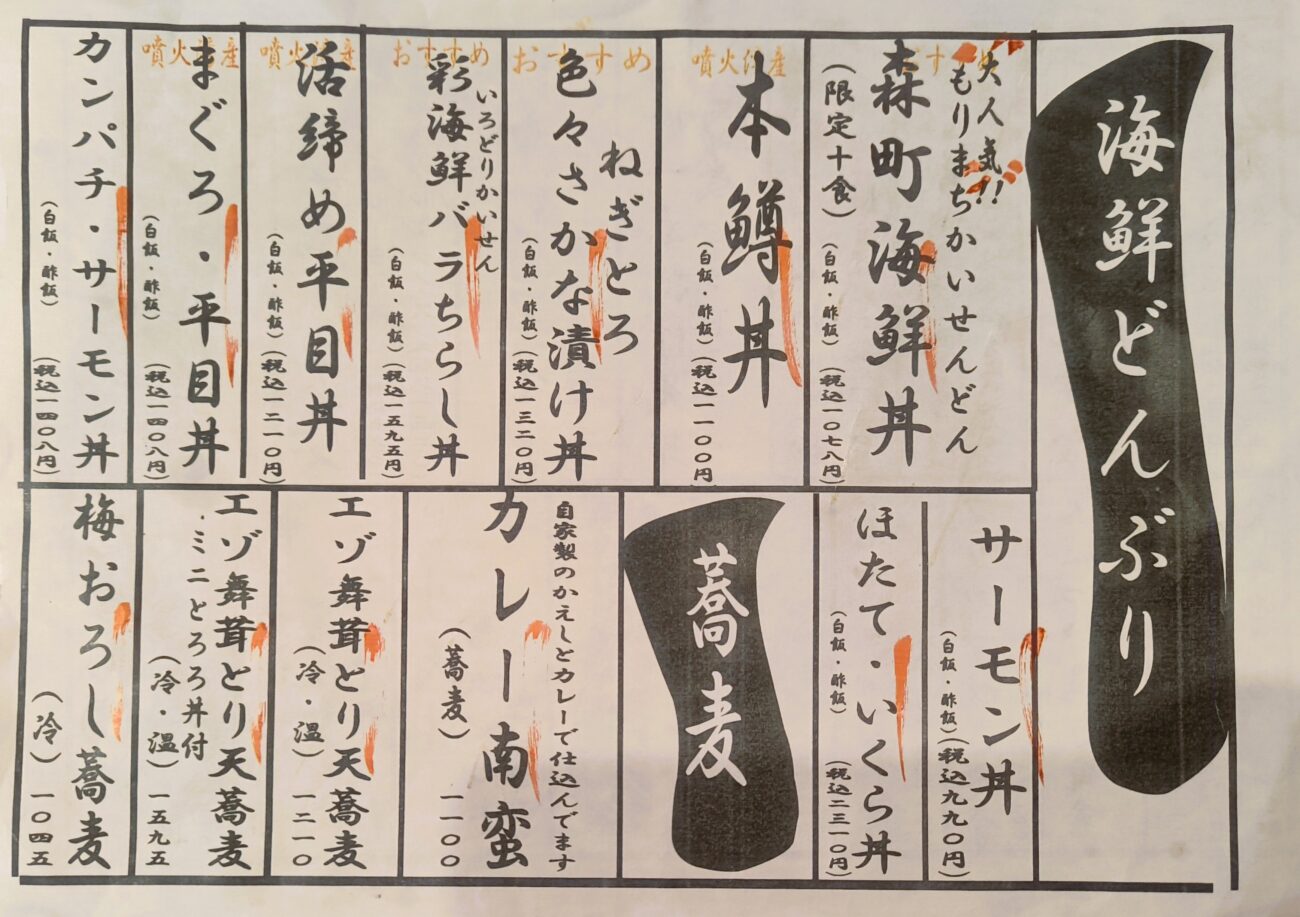 海鮮どんぶり
おすすめ
大人気!!
もりまちかいせんどん
森町海鮮丼
(限定十食)
(白飯・酢飯)(税込一〇七八円)
噴火湾産
本鱒丼
(白飯・酢飯)(税込一一〇〇円)
おすすめ
ねぎとろ
色々さかな漬け丼
(白飯・酢飯)(税込一三二〇円)
おすすめ
いろどりかいせん
彩海鮮バラちらし丼
(白飯・酢飯)(税込一五九五円)
噴火湾産
活締め平目丼
(白飯・酢飯)(税込一二一〇円)
噴火湾産
まぐろ・平目丼
(白飯・酢飯)(税込一四〇八円)
カンパチ・サーモン丼
(白飯・酢飯)(税込一四〇八円)
サーモン丼
(白飯・酢飯)(税込九九〇円)
ほたて・いくら丼
(白飯・酢飯)(税込二三一〇円)
蕎麦
自家製のかえしとカレーで仕込んでます
カレー南蛮
(蕎麦)一一〇〇
エゾ舞茸とり天蕎麦
(冷・温)一二一〇
エゾ舞茸とり天蕎麦
・ミニとろろ丼付
(冷・温)一五九五
梅おろし蕎麦
(冷)一〇四五